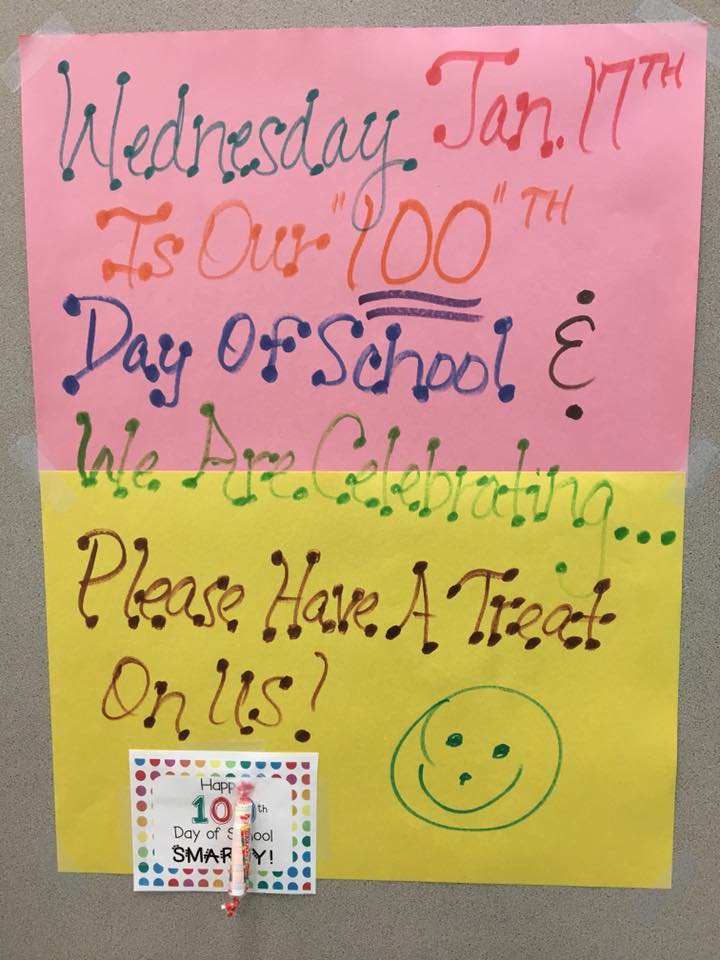 Wednesday Jan. 17TH
Is Our "100"TH
Day Of School &
We Are Celebrating...
Please Have A Treat
On Us!
Happy
100th
Day of School
SMARTY!